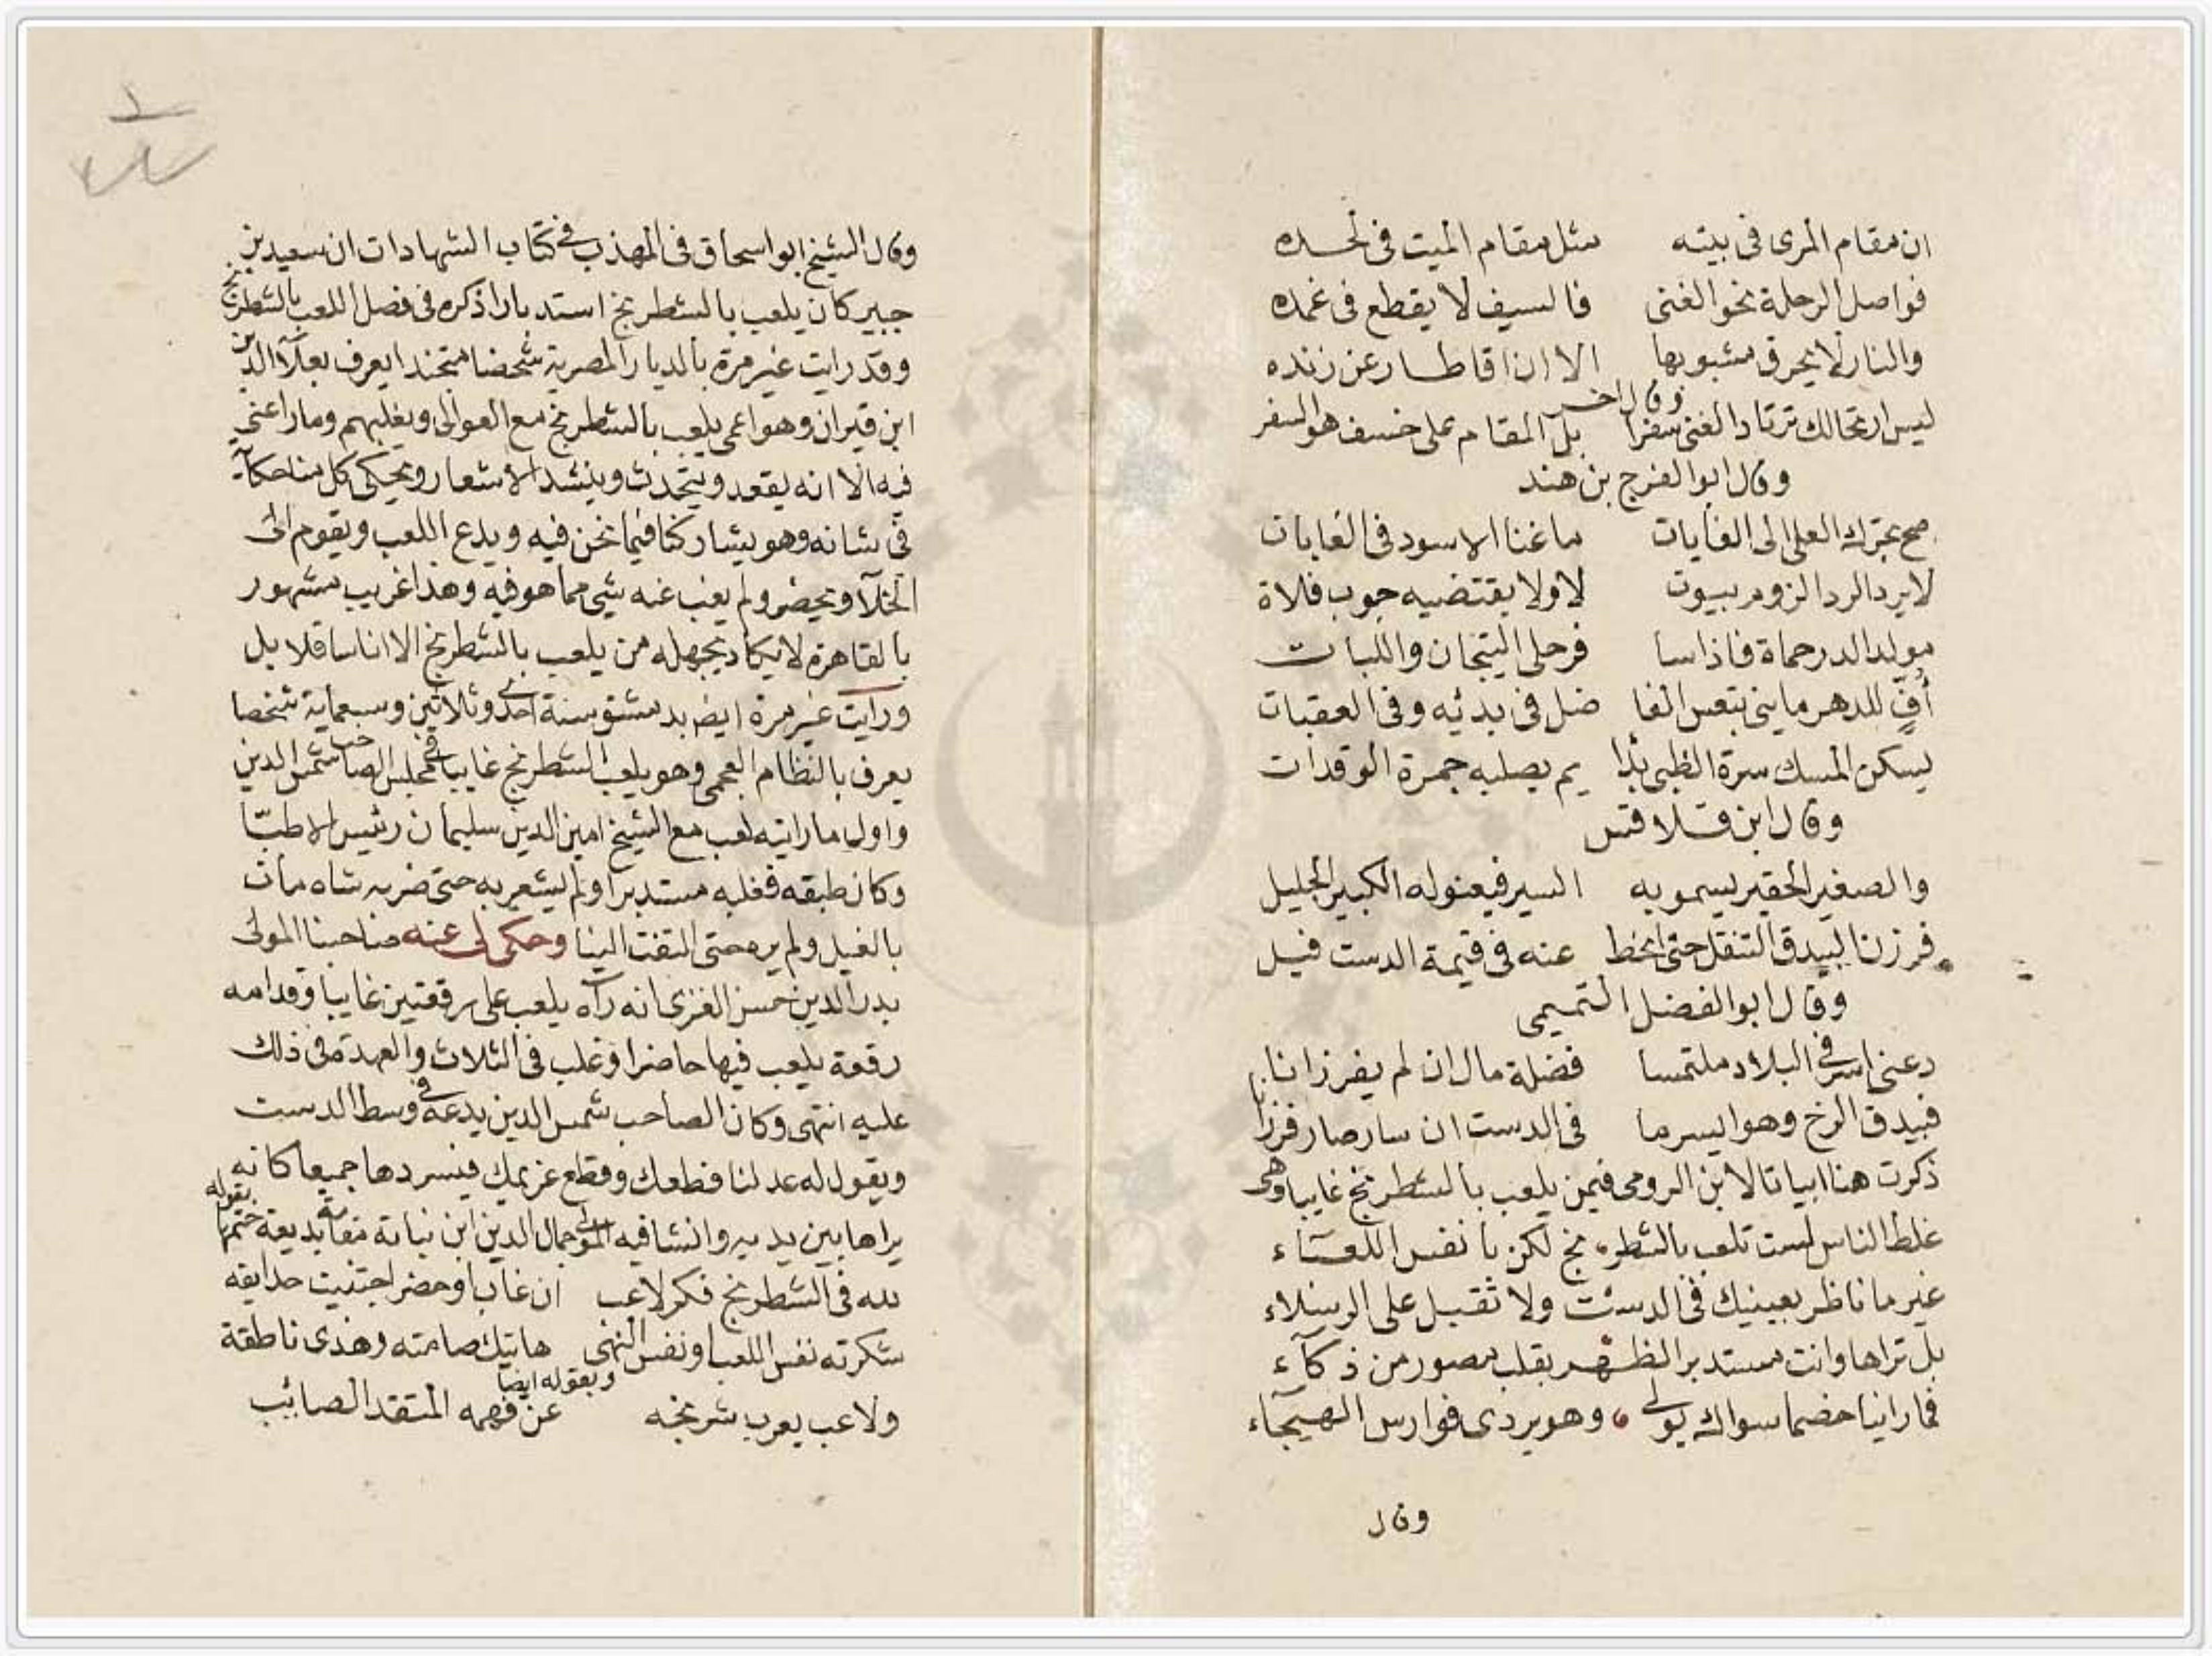 ان مقام المرى فى بيته مثل مقام الميت فى لحده
فواصل الرحلة نحو الغنى فالسيف لا يقطع فى غمده
والنار لا يحرق مشبوبها الا اذا قاطار عن زنده
وقال اخر
ليس ارتحالك ترتاد الغنى سفرا بل المقام على خسف هو السفر
وقال ابو الفرج بن هند
صح بخرك العلى الى الغايات ما غنا الاسود فى الغابات
لا يرد الردا لزوم بيوت لا ولا يقتضيه جوب فلاة
مولد الدر حماة فاذا سا فر حلى التيجان واللبات
أف للدهر ما ينى يتعس الفا ضل فى بدئه وفى العقبات
يسكن المسك سرة الظبى بدا يم يصليه جمرة الوقدات
وقال ابن قلاقس
والصغير الحقير يسمو به السير فيعنو له الكبير الجليل
فرزن البيدق التنقل حتى انحط عنه فى قيمة الدست فيل
وقال ابو الفضل التميمى
دعنى اسر فى البلاد ملتمسا فضلة مال ان لم يفر زانا
فبيدق الرخ وهو ايسر ما فى الدست ان سار صار فرزانا
ذكرت هنا ابياتا لابن الرومى فيمن يلعب بالشطرنج غايبا وهى
غلط الناس لست تلعب بالشطر نج لكن بانفس اللعباء
غير ما ناظر بعينيك فى الدست ولا ثقبل على الرسلاء
بل تراها وانت مستدبر الظهر بقلب مصور من ذكآء
فما راينا خصما سواك يولى وهو يردى فوارس الهيجآء
وقال
وقال الشيخ ابو اسحاق فى المهذب فى كتاب الشهادات ان سعيد بن
جبير كان يلعب بالشطرنج استدبارا ذكره فى فصل اللعب بالشطرنج
وقد رايت غير مرة بالديار المصرية شخصا متجندا يعرف بعلآ الدين
ابن قيران وهو اعمى يلعب بالشطرنج مع العوالى ويغلبهم وما راعنى
فيه الا انه يقعد ويتحدث وينشد الاشعار ويحكى كل منا حكآية
فى شانه وهو يشاركنا فيما نحن فيه ويدع اللعب ويقوم الى
الخلآ ويحضر ولم يغب عنه شى مما هو فيه وهذا غريب مشهور
بالقاهرة لا يكاد يجهله من يلعب بالشطرنج الا اناسا قلايل
ورايت غير مرة ايضا بدمشق سنة احدى وثلاثين وسبعماية شخصا
يعرف بالنظام العجمى وهو يلعب الشطرنج غايبا فى مجلس الصاحب شمس الدين
واول ما رايته لعب مع الشيخ امين الدين سليمان رئيس الاطبّا
وكان طبقه فغلبه مستدبرا ولم يشعر به حتى ضربه شاه مات
بالفيل ولم يره حتى التفت الينا وحكى لى عنه صاحبنا المولى
بدر الدين حسن الغزى انه رآه يلعب على رقعتين غايبا وقدامه
رقعة يلعب فيها حاضرا وغلب فى الثلاث والعهدة فى ذلك
عليه انتهى وكان الصاحب شمس الدين يدعه فى وسط الدست
ويقول له عد لنا قطعك وقطع غريمك فيسردها جميعا كانه
يراها بين يديه وانشا فيه المولى جمال الدين ابن نباتة مقامة بديعة ختمها بقوله
لله فى الشطرنج فكر لاعب ان غاب او حضر اجتنيت حدايقه
شكرته نفس اللعب او نفس النهى هاتيك صامته وهذى ناطقة
وبقوله ايضا
ولاعب يعرب شرنجه عن فهمه المتقد الصائب